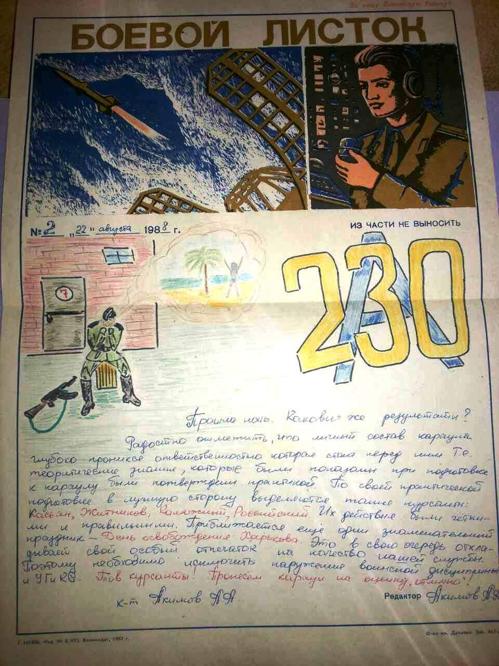 За нашу Советскую Родину!
БОЕВОЙ ЛИСТОК
№ 2 „22" августа 1988 г.
ИЗ ЧАСТИ НЕ ВЫНОСИТЬ
7
230
Прошла ночь. Каковы же результаты?
Радостно отметить, что личный состав караула
глубоко проникся ответственностью которая стоит перед ним. Т.е.
теоритические знания, которые были показаны при подготовке
к караулу были потверждены практикой. По своей практической
подготовке в лучшую сторону выделяются такие курсанты:
Житников, Российский. Их действия были четки-
ми и правильными. Приближается ещё один знаменательный
праздник – День освобождения Харькова. Это в свою очередь откла-
дывает свой особый отпечаток на качество нашей службы.
Поэтому необходимо исключить нарушение воинской дисциплины
и УГиКС. Тов курсанты! Пронесем караул на оценку „отлично"!
к-т Акимов А.А
Редактор Акимов А.А